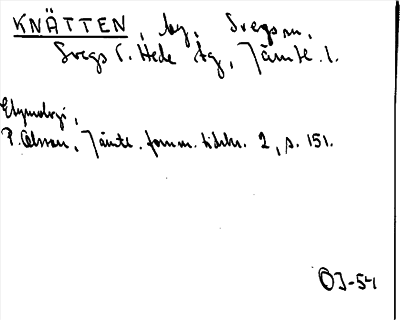 KNÄTTEN, by, Svegs sn,
Svegs o. Hede tg, Jämtl. l.
Etymologi,
P. Olsson, Jämtl. fornm. tidskr. 2, s. 151.
OJ-54